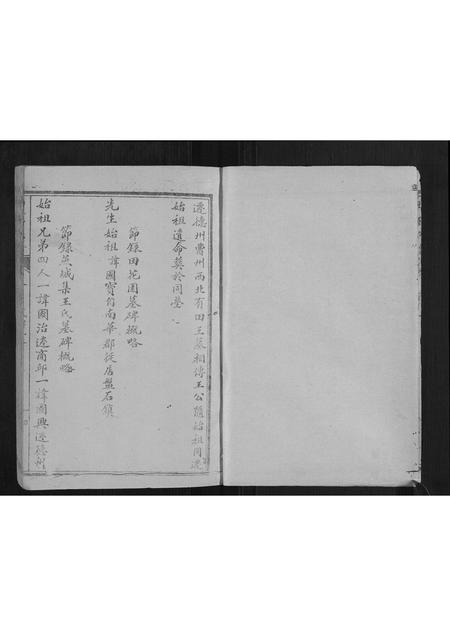 遷德州曹州西北有田王墓相傳王公隨始祖同遷
始祖遺命葬於同塋
節錄田花園墓碑概略
先生始祖諱國寶自南華郡從居盤石鎮
節錄吳城集王氏墓碑概略
始祖兄弟四人一諱國治遷商邱一諱國興遷德州